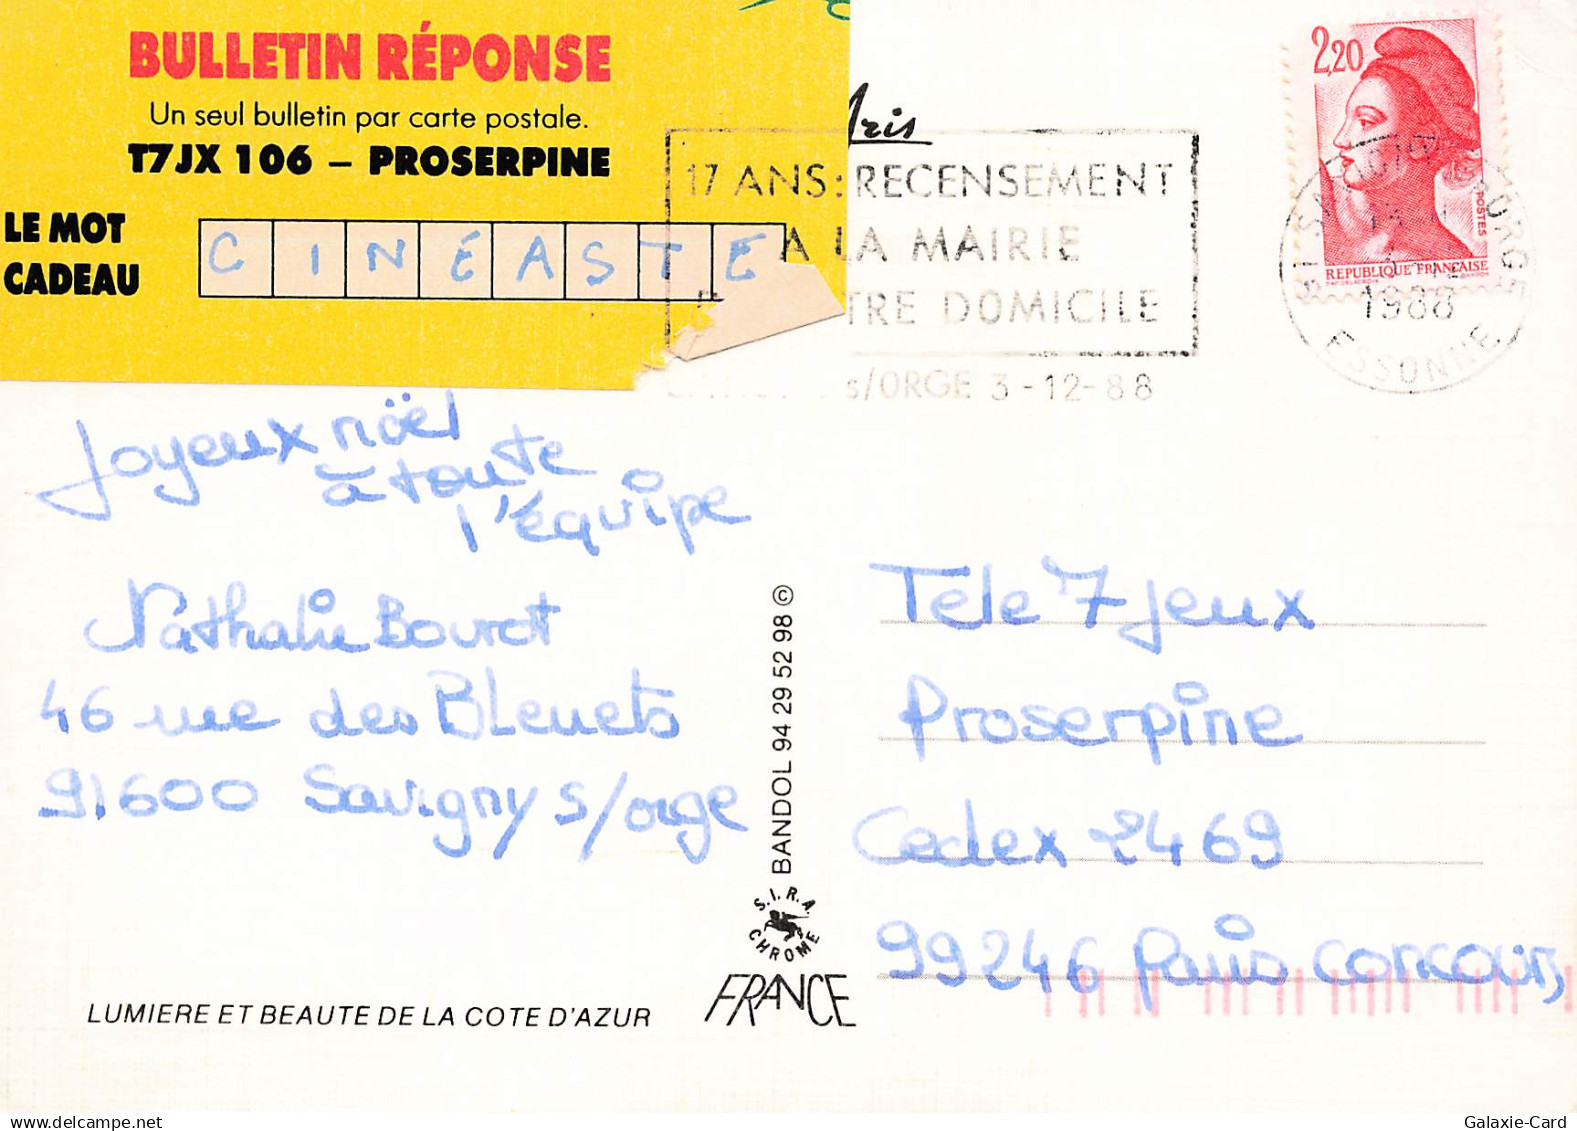 BULLETIN RÉPONSE
Un seul bulletin par carte postale.
T7JX 106 – PROSERPINE
LE MOT
CADEAU
CINÉASTE
17 ANS: RECENSEMENT
A LA MAIRIE
TRE DOMICILE
s/ORGE 3-12-88
2,20
POSTES
REPUBLIQUE FRANÇAISE
1988
ESSONNE
Joyeux noël
à toute
l'équipe
Nathalie Bourot
46 rue des Bleuets
91600 Savigny s/orge
LUMIERE ET BEAUTE DE LA COTE D'AZUR
BANDOL 94 29 52 98 ©
S.I.R.A.
CHROME
FRANCE
Tele 7 Jeux
Proserpine
Cedex 2469
99246 Paris Concours
Galaxie-Card